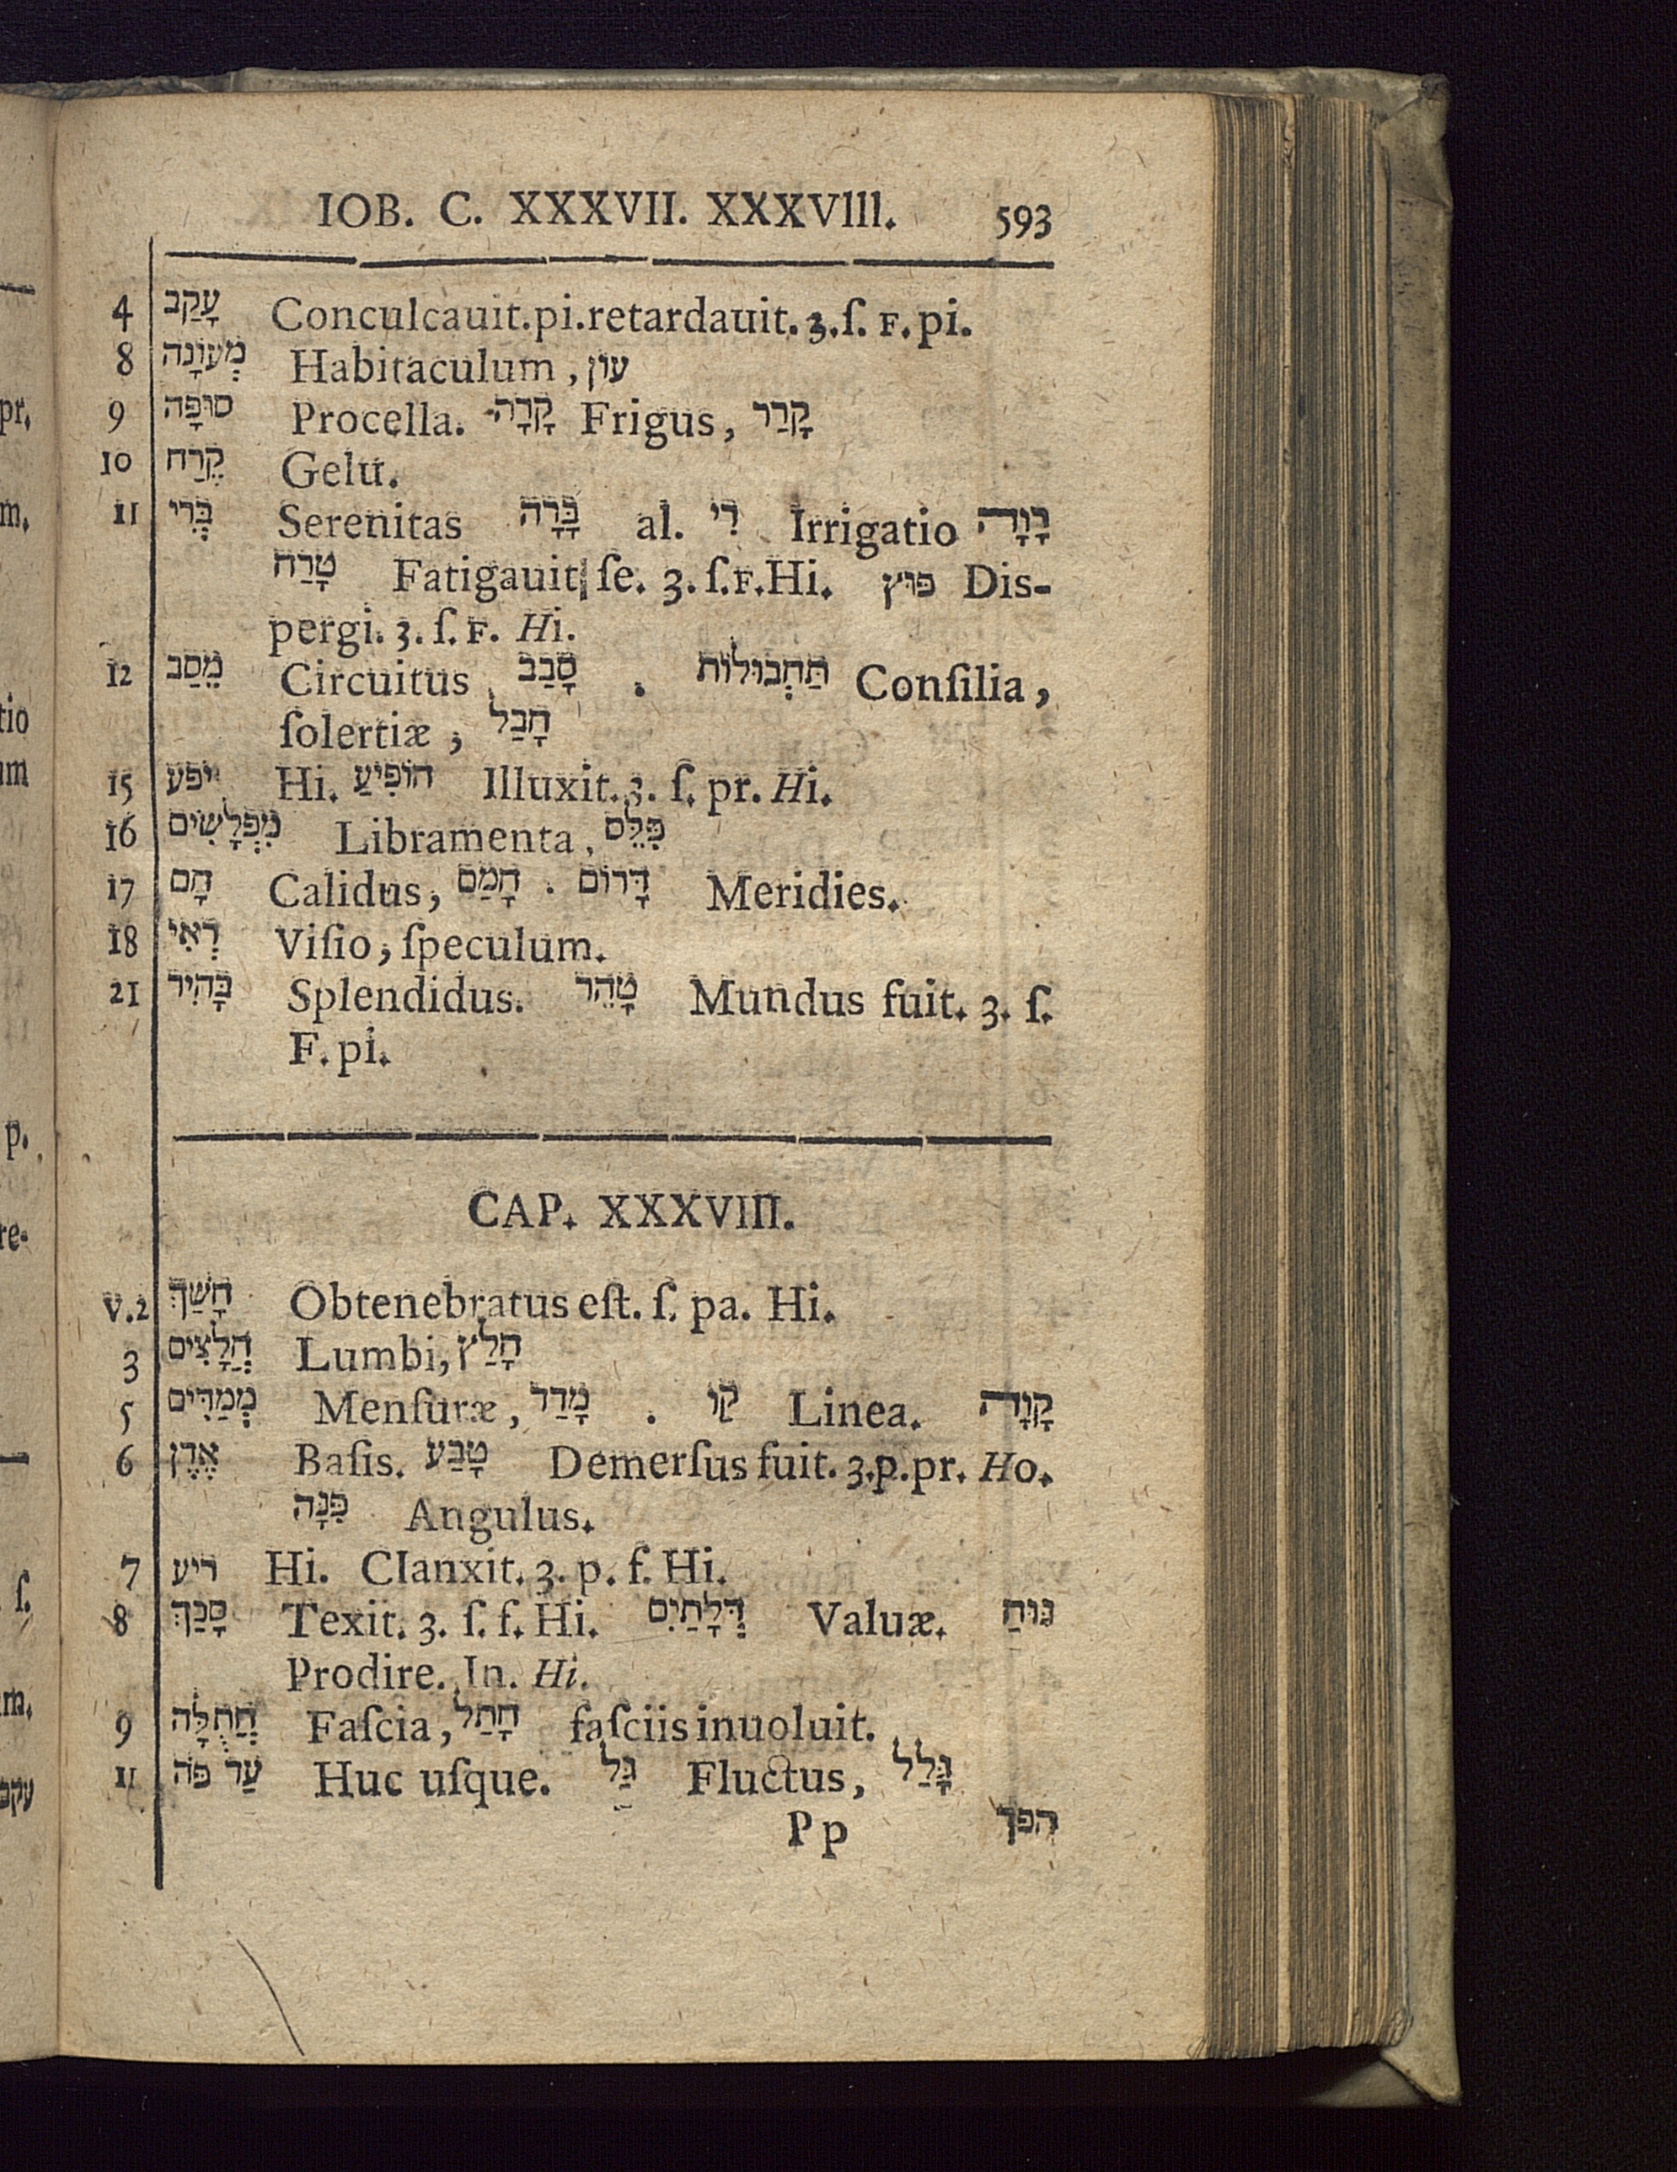 IOB. C. XXXVII. XXXVIII. 593
4 עָקַב Conculcauit.pi.retardauit.3.ſ. F.pi.
8 מְעוֹנָה Habitaculum, עון
9 סוּפָה Procella. קָרָה Frigus, קָרַר
10 קֶרַח Gelu.
11 בְּרִי Serenitas בָּרָה al. רִי Irrigatio רָוָה
טָרַח Fatigauit ſe. 3. ſ.F.Hi. פוּץ Dis-
pergi. 3. ſ. F. Hi.
12 מֵסַב Circuitus סָבַב . תַּחְבּוּלוֹת Conſilia,
ſolertiæ, חָבַל
15 יפע Hi. הוֹפִיעַ Illuxit.3. ſ. pr. Hi.
16 מִפְלָשִׂים Libramenta, פִּלֵּס
17 חָם Calidus, חָמַם . דָּרוֹם Meridies.
18 רְאִי Viſio, ſpeculum.
21 בָּהִיר Splendidus. טָהֵר Mundus fuit. 3. ſ.
F. pi.
CAP. XXXVIII.
V.2 חָשַׁךְ Obtenebratus eſt. ſ. pa. Hi.
3 חֲלָצִים Lumbi, חָלַץ
5 מְמַדִּים Menſuræ, מָדַד . קַו Linea. קָוָה
6 אֶדֶן Baſis. טָבַע Demerſus fuit. 3.p.pr. Ho.
פִּנָּה Angulus.
7 ריע Hi. Clanxit. 3. p. f. Hi.
8 סָכַךְ Texit. 3. ſ. f. Hi. דְּלָתַיִם Valuæ. גּוּחַ
Prodire. In. Hi.
9 חֲתֻלָּה Faſcia, חָתַל faſciis inuoluit.
11 עַד פֹּה Huc uſque. גַּל Fluctus, גָּלַל
Pp הפך